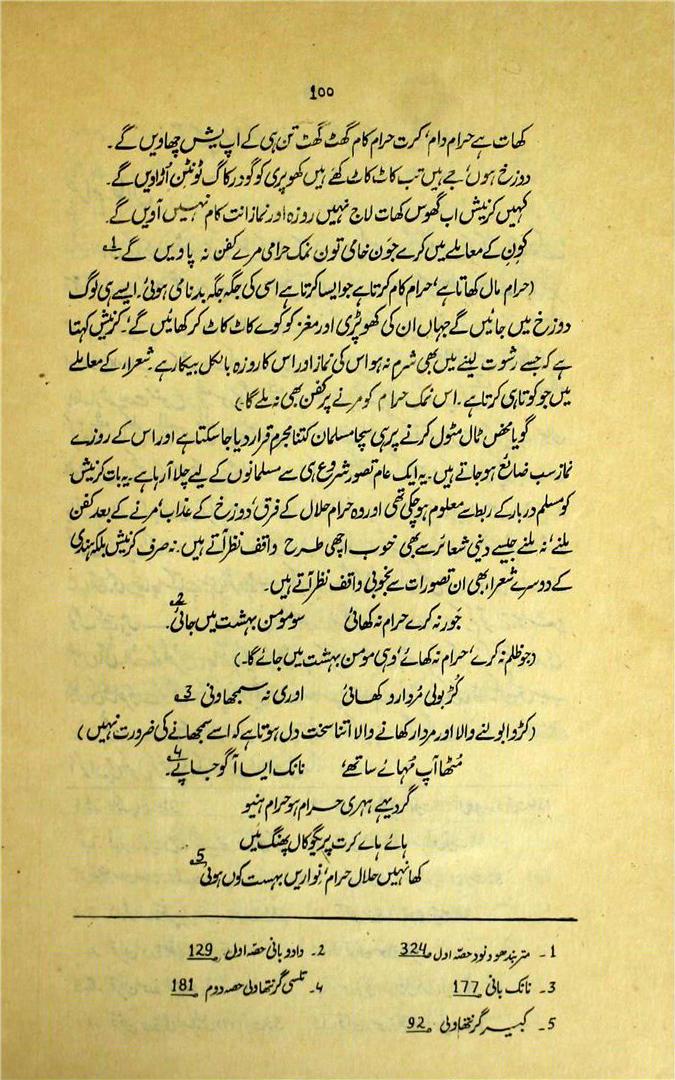 100
کھات ہے حرام دام، کرت حرام کام گھٹ گھٹ تن ہی کے اپ یش چھاویں گے۔
دوزخ ہوں، جے ہیں تب کاٹ کاٹ کھے ہیں کھوپری کو گود رکاگ ٹونٹن اُڑاویں گے۔
کہیں کرنیش اب گھوس کھات لاج نہیں روزہ اور نماز انت کام نہیں آویں گے۔
کون کے معاملے میں کرے جون خامی تون نمک حرامی مرے کفن نہ پاویں گے۔1
(حرام مال کھاتا ہے، حرام کام کرتا ہے جو ایسا کرتا ہے اسی کی جگہ جگہ بدنامی ہوئی۔ ایسے ہی لوگ
دوزخ میں جائیں گے جہاں ان کی کھوپڑی اور مغز کو کوے کاٹ کاٹ کر کھائیں گے۔ کرنیش کہتا
ہے کہ جسے رشوت لینے میں بھی شرم نہ ہو اس کی نماز اور اس کا روزہ بالکل بیکار ہے۔ شعراء کے معاملے
میں جو کوتاہی کرتا ہے۔ اس نمک حرام کو مرنے پر کفن بھی نہ ملے گا۔)
گویا محض ٹال مٹول کرنے پر ہی سچا مسلمان کتنا مجرم قرار دیا جا سکتا ہے اور اس کے روزے
نماز سب ضائع ہو جاتے ہیں۔ یہ ایک عام تصور شروع ہی سے مسلمانوں کے لیے چلا آ رہا ہے۔ یہ بات کرنیش
کو مسلم دربار کے ربط سے معلوم ہو چکی تھی اور وہ حرام حلال کے فرق، دوزخ کے عذاب، مرنے کے بعد کفن
ملنے، نہ ملنے جیسے دینی شعائر سے بھی خوب اچھی طرح واقف نظر آتے ہیں۔ نہ صرف کرنیش بلکہ ہندی
کے دوسرے شعراء بھی ان تصورات سے بخوبی واقف نظر آتے ہیں۔
جَور نہ کرے حرام نہ کھائی سو مومن بہشت میں جائی۔2
(جو ظلم نہ کرے، حرام نہ کھائے، وہی مومن بہشت میں جائے گا۔)
کُڑ بولی مُردار د کھائی اوری نہ سمجھاونی 3
(کڑوا بولنے والا اور مردار کھانے والا اتنا سخت دل ہوتا ہے کہ اسے سمجھانے کی ضرورت نہیں)
مُٹھا آپ مُہائے ساتھے، نانک ایسا آگو جاپے۔4
گر دیہے ہہری حرام ہو حرام ہنیو
ہائے ہائے کرت پریگو کال پھنگ میں
کھا نہیں حلال حرام، نِواریں بہست کوں ہوئی 5
1۔ متر بندھو ونود حصّہ اول 324
2۔ دادو بانی حصّہ اول 129
3۔ نانک بانی 177
4۔ تلسی گرنتھاولی حصہ دوم 181
5۔ کبیر گرنتھاولی 92